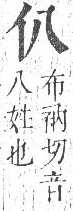 仈
布衲切音
八姓也